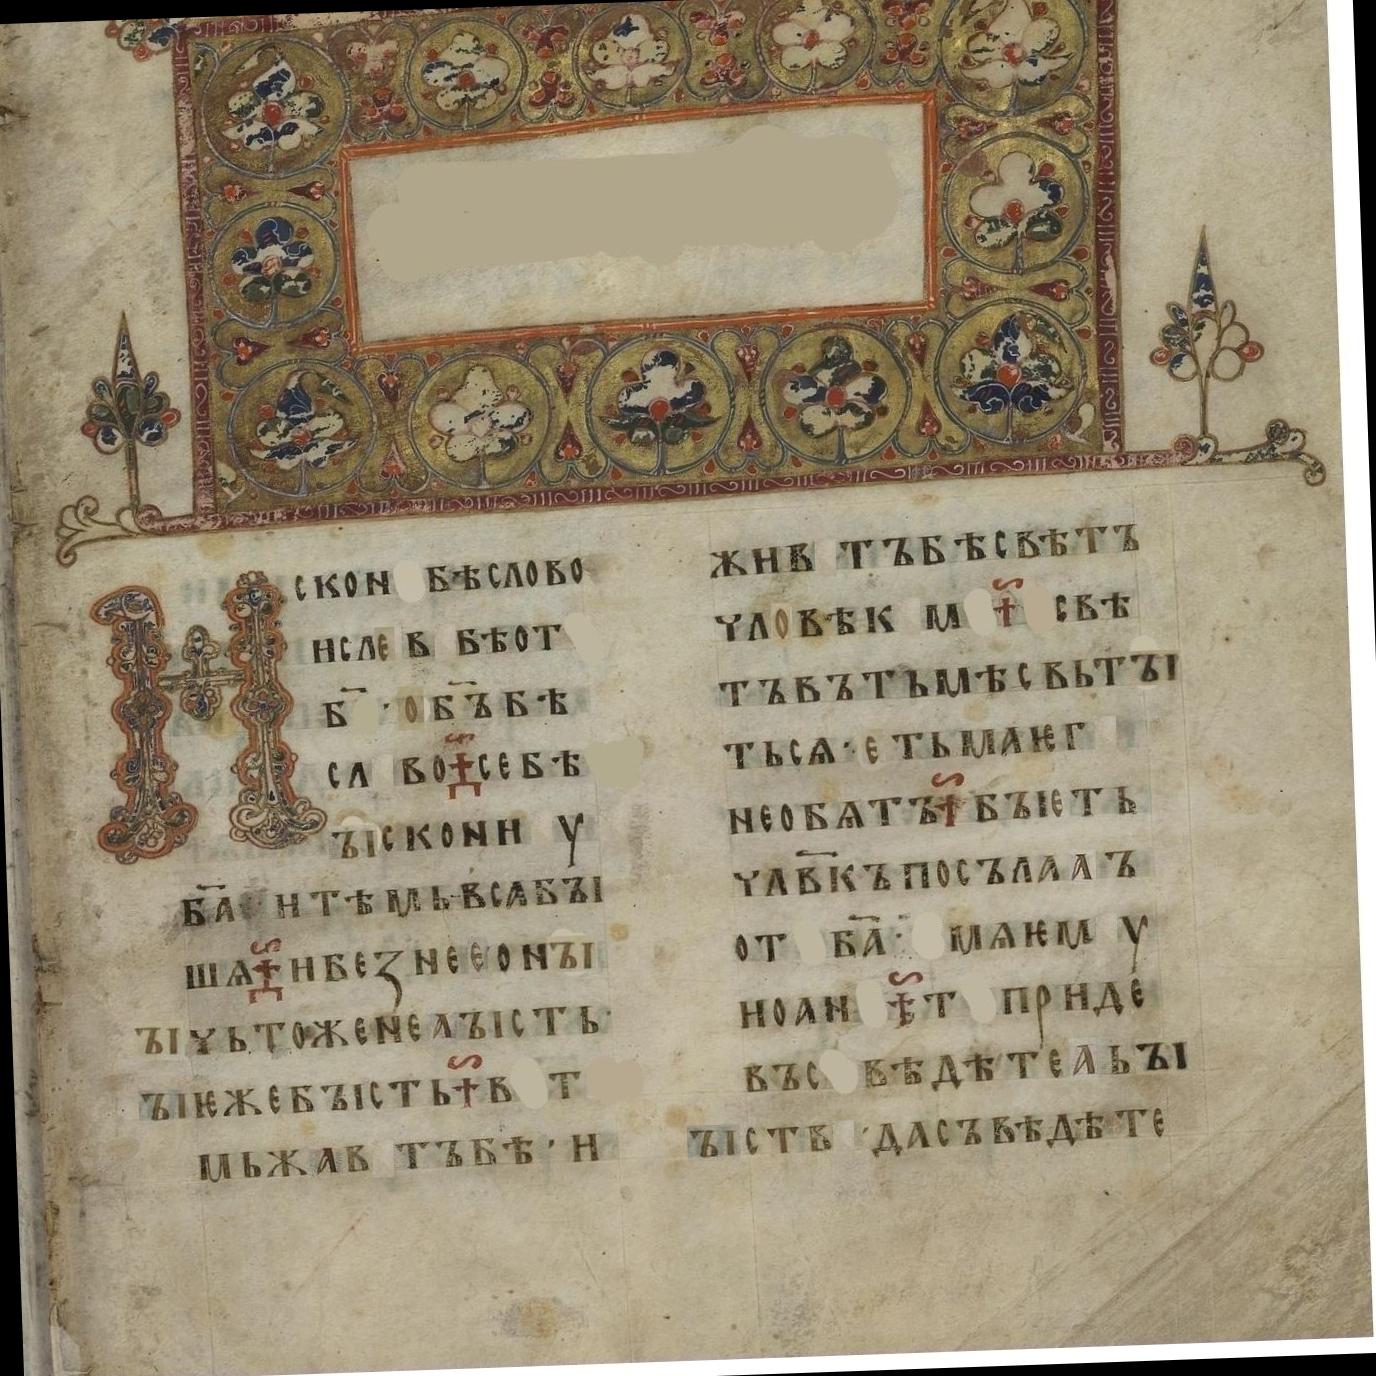 Искон бѣслово
исле в бѣот
б҃ · об҃ъбѣ
сл восебѣ
ъіскони у
б҃а итѣмьвсабъі
шѧинбезнееонъі
ъічьтоженеаъість·
ъіѥжебъістьв т
мьжав тъбѣ·и
жив тъбѣсвѣтъ
чловѣк м свѣ
тъвътьмѣсвьтъі
тьсѧ·етьмаѥг
необѧтъбъіѥть
члв҃къпосълааъ
от б҃а· мѧѥм у
ноан т приде
въс вѣдѣтеаьъі
ъіств ·дасъвѣдѣте